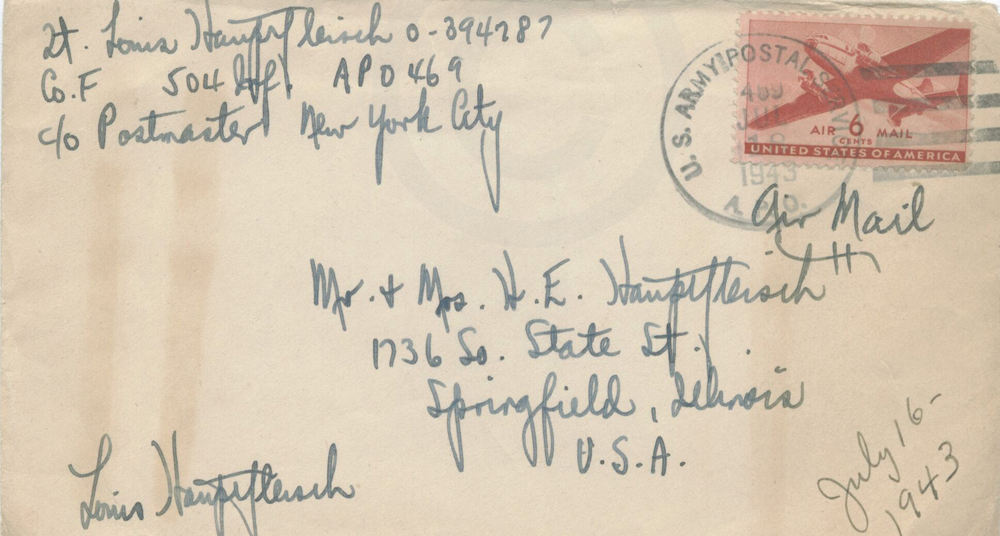 Lt. Louis Hauptfleisch O-394287
Co. F 504 Inf. APO 469
c/o Postmaster New York City
U.S. ARMY POSTAL
1943
A.P.O.
AIR 6 MAIL
CENTS
UNITED STATES OF AMERICA
Air Mail
Mr. + Mrs. H. E. Hauptfleisch
1736 So. State St.
Springfield, Illinois
U.S.A.
Louis Hauptfleisch
July 16-
1943